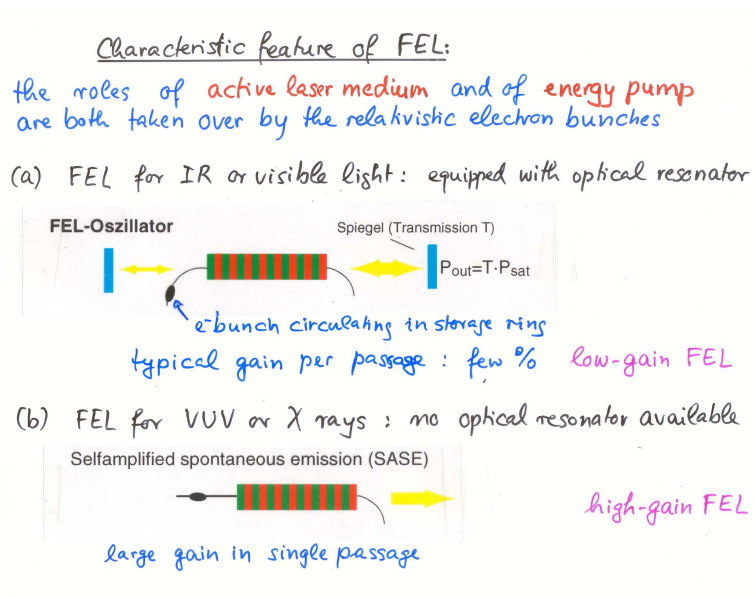 Characteristic feature of FEL:
the roles of active laser medium and of energy pump
are both taken over by the relativistic electron bunches
(a) FEL for IR or visible light: equipped with optical resonator
FEL-Oszillator
Spiegel (Transmission T)
Pout=T·Psat
e⁻bunch circulating in storage ring
typical gain per passage : few % low-gain FEL
(b) FEL for VUV or X rays : no optical resonator available
Selfamplified spontaneous emission (SASE)
high-gain FEL
large gain in single passage